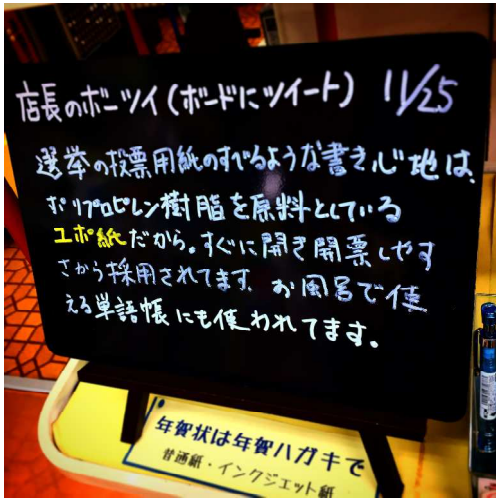 店長のボーツイ(ボードにツイート) 11/25
選挙の投票用紙のすべるような書き心地は、
ポリプロピレン樹脂を原料としている
ユポ紙だから。すぐに開き開票しやす
さから採用されてます。お風呂で使
える単語帳にも使われてます。
年賀状は年賀ハガキで
普通紙・インクジェット紙